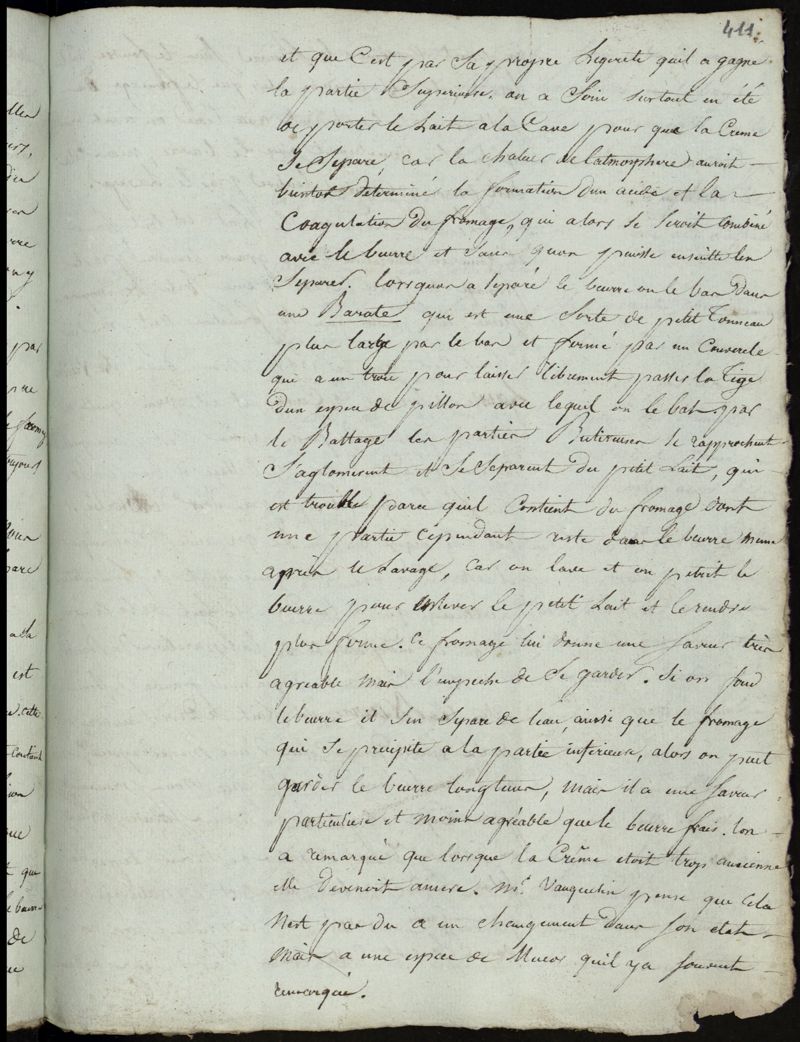 411.
et que C'est par Sa propre Legereté quil a gagné
la partie Superieure. on a Soin surtout en été
de porter le Lait a la Cave pour que la Crême
Se Separe, car la chaleur de latmosphere auroit
bientot determiné la formation dun acide et la
Coagulation du fromage, qui alors se seroit combiné
avec le beurre et sans quon puisse ensuitte les
Separer. lorsquon a separé le beurre on le bat dans
une Barate qui est une Sorte de petit Tonneau
plus large par le bas et fermé par un Couvercle
qui a un trou pour laisser librement passer la Tige
dun espece de pillon avec lequel on le bat. par
le Battage les parties Butireuses se rapprochent
S'aglomerent et se Separent du petit Lait, qui
est trouble parce quil contient du fromage dont
une partie cependant reste dans le beurre meme
après le Lavage, car on lave et on petrit le
beurre pour enlever le petit Lait et le rendre
plus ferme. Ce fromage lui donne une Saveur très
agréable mais l'empeche de Se garder. Si on fond
le beurre il S'en Separe de leau, ainsi que le fromage
qui Se precipite a la partie inferieure, alors on peut
garder le beurre longtems, mais il a une Saveur
particuliere et moins agréable que le beurre frais. lon
a remarqué que lorsque la Crême etoit trop ancienne
elle devenoit amere. Mr. Vauquelin pense que cela
n'est pas du a un changement dans son etat
mais a une espece de Mucor quil y a souvent
remarqué.